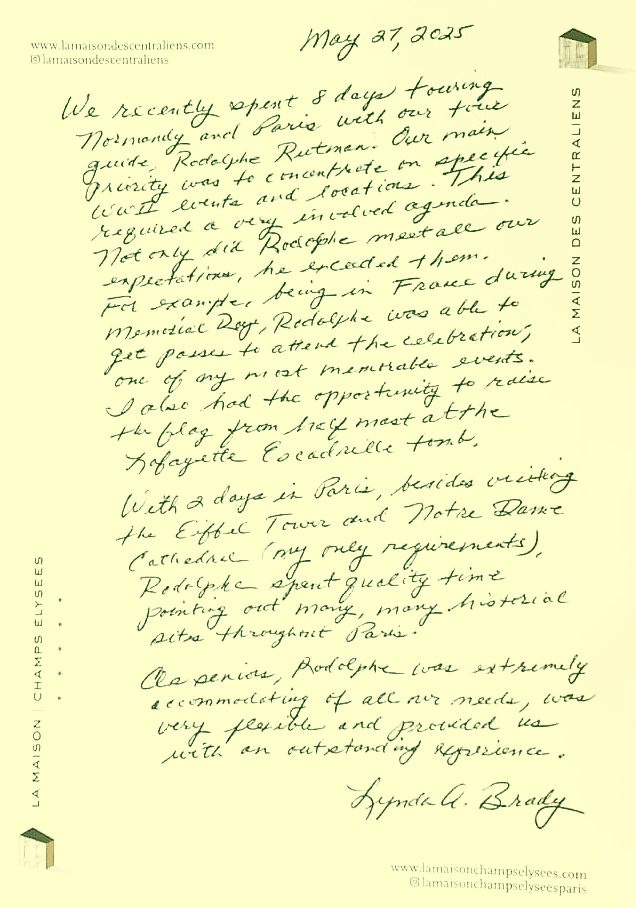 www.lamaisondescentraliens.com
@lamaisondescentraliens
May 27, 2025
LA MAISON DES CENTRALIENS
We recently spent 8 days touring
Normandy and Paris with our tour
guide, Rodolphe Rutman. Our main
priority was to concentrate on specific
WWII events and locations. This
required a very involved agenda.
Not only did Rodolphe meet all our
expectations, he exceded them.
For example, being in France during
Memorial Day, Rodolphe was able to
get passes to attend the celebration;
one of my most memorable events.
I also had the opportunity to raise
the flag from half mast at the
Lafayette Escadrille tomb.
With 2 days in Paris, besides visiting
the Eiffel Tower and Notre Dame
Cathedral (my only requirements),
Rodolphe spent quality time
pointing out many, many historical
sites throughout Paris.
As seniors, Rodolphe was extremely
accommodating of all our needs, was
very flexible and provided us
with an outstanding experience.
Lynda A. Brady
LA MAISON | CHAMPS ELYSEES
www.lamaisonchampselysees.com
@lamaisonchampselyseesparis